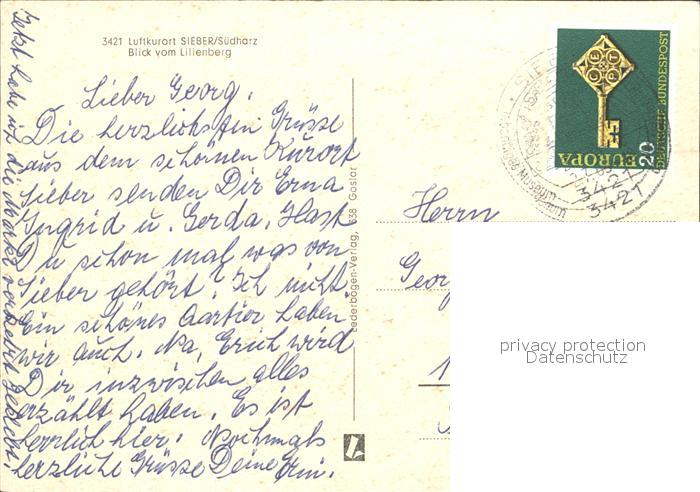 3421 Luftkurort SIEBER/Südharz
Blick vom Lilienberg
Lieber Georg,
Die herzlichsten Grüsse
aus dem schönen Kurort
Sieber senden Dir Erna
Ingrid u. Gerda. Hast
Du schon mal was von
Sieber gehört? Ich nicht.
Ein schönes Qartier haben
wir auch. Na, Erich wird
Dir inzwischen alles
erzählt haben. Es ist
herrlich hier. Nochmals
herzliche Grüsse Deine Erni.
Jetzt habe ich die Marke verkehrt geklebt.
Lederbogen-Verlag, 338 Goslar
DEUTSCHE BUNDESPOST
20
EUROPA
CEPT
3421
3421
Museum
Herrn
Georg
privacy protection
Datenschutz